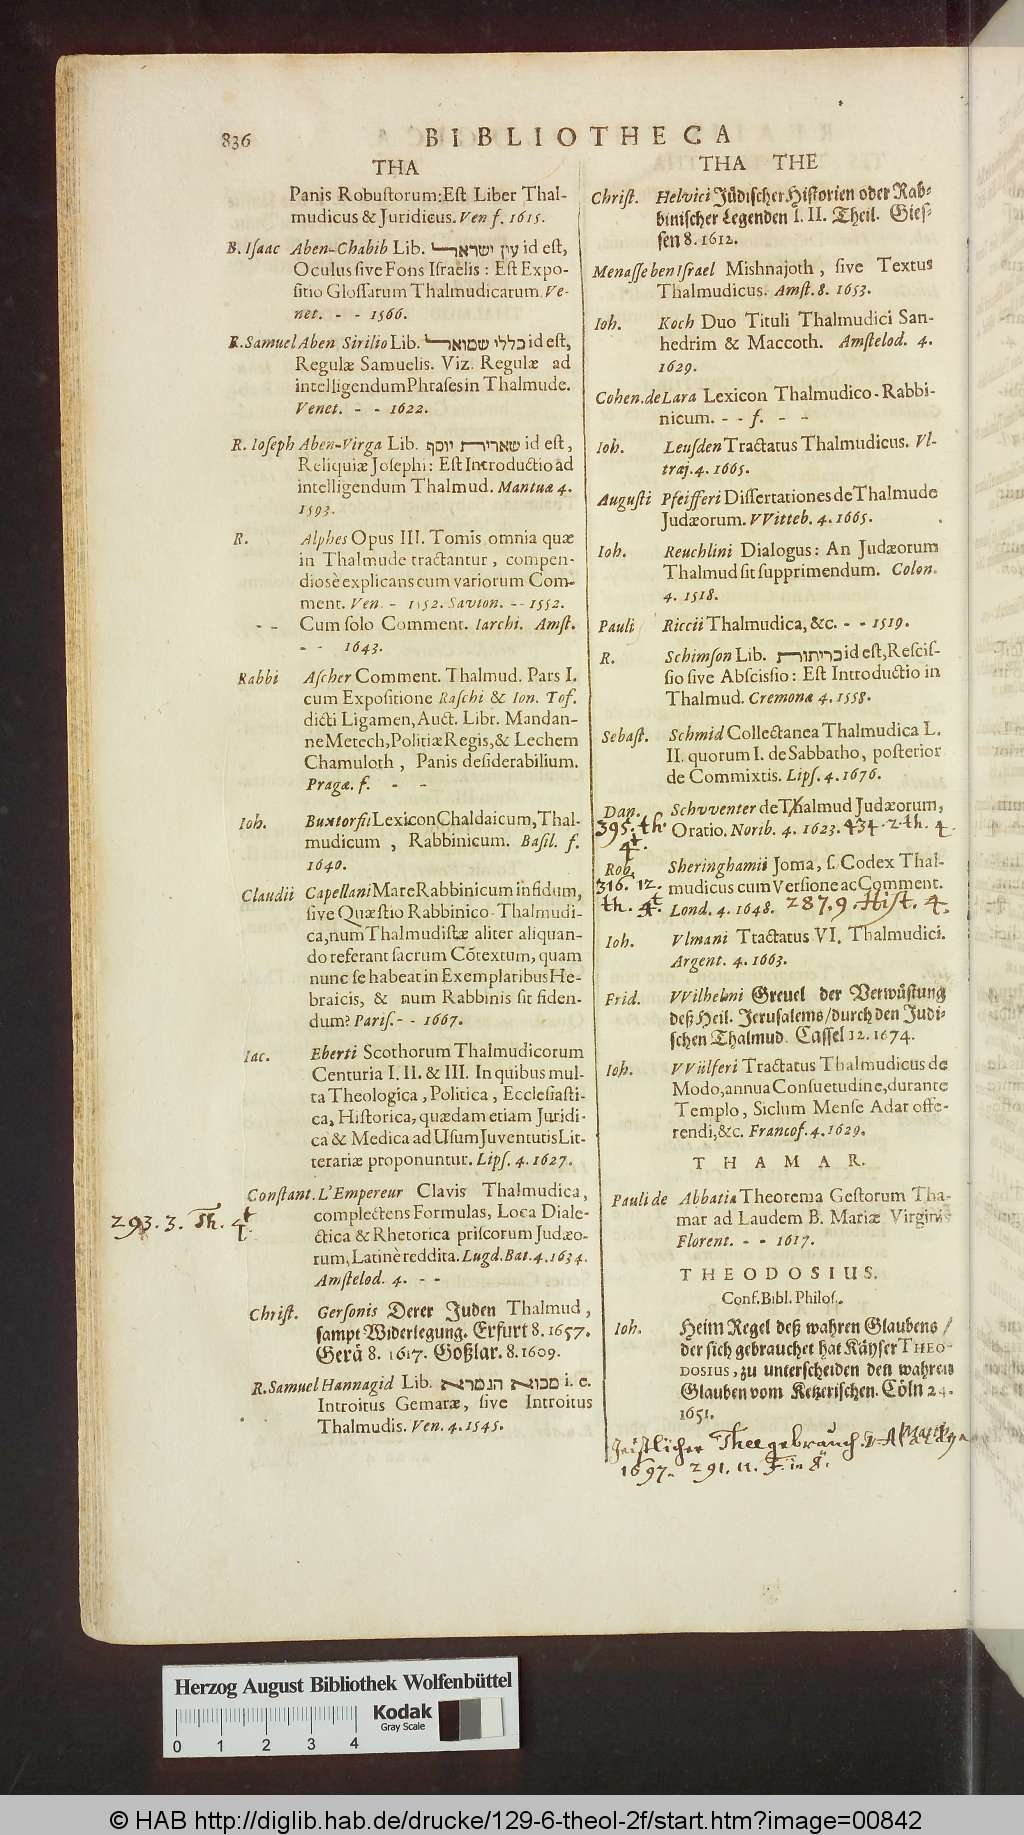 836 BIBLIOTHECA
THA
Panis Robustorum: Est Liber Thal-
mudicus & Juridicus. Ven f. 1615.
B. Isaac Aben-Chabib Lib. עין ישראל id est,
Oculus sive Fons Israelis : Est Expo-
sitio Glossarum Thalmudicarum. Ve-
net. - - 1566.
R. Samuel Aben Sirilio Lib. כללי שמואל id est,
Regulæ Samuelis. Viz. Regulæ ad
intelligendum Phrases in Thalmude.
Venet. - - 1622.
R. Ioseph Aben-Virga Lib. שארית יוסף id est,
Reliquiæ Josephi: Est Introductio ad
intelligendum Thalmud. Mantuæ 4.
1593.
R. Alphes Opus III. Tomis omnia quæ
in Thalmude tractantur, compen-
diosè explicans cum variorum Com-
ment. Ven. - 1552. Savion. -- 1552.
- - Cum solo Comment. Iarchi. Amst.
- - 1643.
Rabbi Ascher Comment. Thalmud. Pars I.
cum Expositione Raschi & Ion. Tos.
dicti Ligamen, Auct. Libr. Mandan-
ne Metech, Politiæ Regis, & Lechem
Chamuloth, Panis desiderabilium.
Pragæ. f. - -
Ioh. Buxtorfii Lexicon Chaldaicum, Thal-
mudicum, Rabbinicum. Basil. f.
1640.
Claudii Capellani Mare Rabbinicum infidum,
sive Quæstio Rabbinico-Thalmudi-
ca, num Thalmudistæ aliter aliquan-
do referant sacrum Cõtextum, quam
nunc se habeat in Exemplaribus He-
braicis, & num Rabbinis sit fiden-
dum? Paris. - - 1667.
Iac. Eberti Scothorum Thalmudicorum
Centuria I. II. & III. In quibus mul-
ta Theologica, Politica, Ecclesiasti-
ca, Historica, quædam etiam Juridi-
ca & Medica ad Usum Juventutis Lit-
terariæ proponuntur. Lips. 4. 1627.
Constant. L'Empereur Clavis Thalmudica,
293. 3. Th. 4t complectens Formulas, Loca Diale-
ctica & Rhetorica priscorum Judæo-
rum, Latinè reddita. Lugd. Bat. 4. 1634.
Amstelod. 4. - -
Christ. Gersonis Derer Juden Thalmud,
sampt Widerlegung. Erfurt 8. 1657.
Gerä 8. 1617. Goßlar. 8. 1609.
R. Samuel Hannagid Lib. מבוא הגמרא i. e.
Introitus Gemaræ, sive Introitus
Thalmudis. Ven. 4. 1545.
THA THE
Christ. Helvici Jüdischer Historien oder Rab-
binischer Legenden I. II. Theil. Gies-
sen 8. 1612.
Menasse ben Israel Mishnajoth, sive Textus
Thalmudicus. Amst. 8. 1653.
Ioh. Koch Duo Tituli Thalmudici San-
hedrim & Maccoth. Amstelod. 4.
1629.
Cohen. de Lara Lexicon Thalmudico-Rabbi-
nicum. - - f. - -
Ioh. Leusden Tractatus Thalmudicus. Vl-
traj. 4. 1665.
Augusti Pfeifferi Dissertationes de Thalmude
Judæorum. VVitteb. 4. 1665.
Ioh. Reuchlini Dialogus: An Judæorum
Thalmud sit supprimendum. Colon.
4. 1518.
Pauli Riccii Thalmudica, &c. - - 1519.
R. Schimson Lib. כריתות id est, Rescis-
sio sive Abscissio: Est Introductio in
Thalmud. Cremonæ 4. 1558.
Sebast. Schmid Collectanea Thalmudica L.
II. quorum I. de Sabbatho, posterior
de Commixtis. Lips. 4. 1676.
Dan. Schvventer de Thalmud Judæorum,
395. th. 4t. Oratio. Norib. 4. 1623. 434. 2. th. 4.
Rob. Sheringhamii Joma, s. Codex Thal-
316. 12. mudicus cum Versione ac Comment.
th. 4t. Lond. 4. 1648. 287. 9. Hist. 4.
Ioh. Vlmani Tractatus VI. Thalmudici.
Argent. 4. 1663.
Frid. VVilhelmi Greuel der Verwüstung
deß Heil. Jerusalems / durch den Jüdi-
schen Thalmud. Cassel 12. 1674.
Ioh. VVülferi Tractatus Thalmudicus de
Modo, annua Consuetudine, durante
Templo, Siclum Mense Adar offe-
rendi, &c. Francof. 4. 1629.
THAMAR.
Pauli de Abbatia Theorema Gestorum Tha-
mar ad Laudem B. Mariæ Virginis
Florent. - - 1617.
THEODOSIUS.
Conf. Bibl. Philos.
Ioh. Heim Regel deß wahren Glaubens /
der sich gebrauchet hat Käyser THEO-
DOSIUS, zu unterscheiden den wahren
Glauben vom Ketzerischen. Cöln 24.
1651.
Geistlicher Thee gebrauch.
1697. 291. 11. F. in 8.
Herzog August Bibliothek Wolfenbüttel
Kodak
Gray Scale
0 1 2 3 4
© HAB http://diglib.hab.de/drucke/129-6-theol-2f/start.htm?image=00842